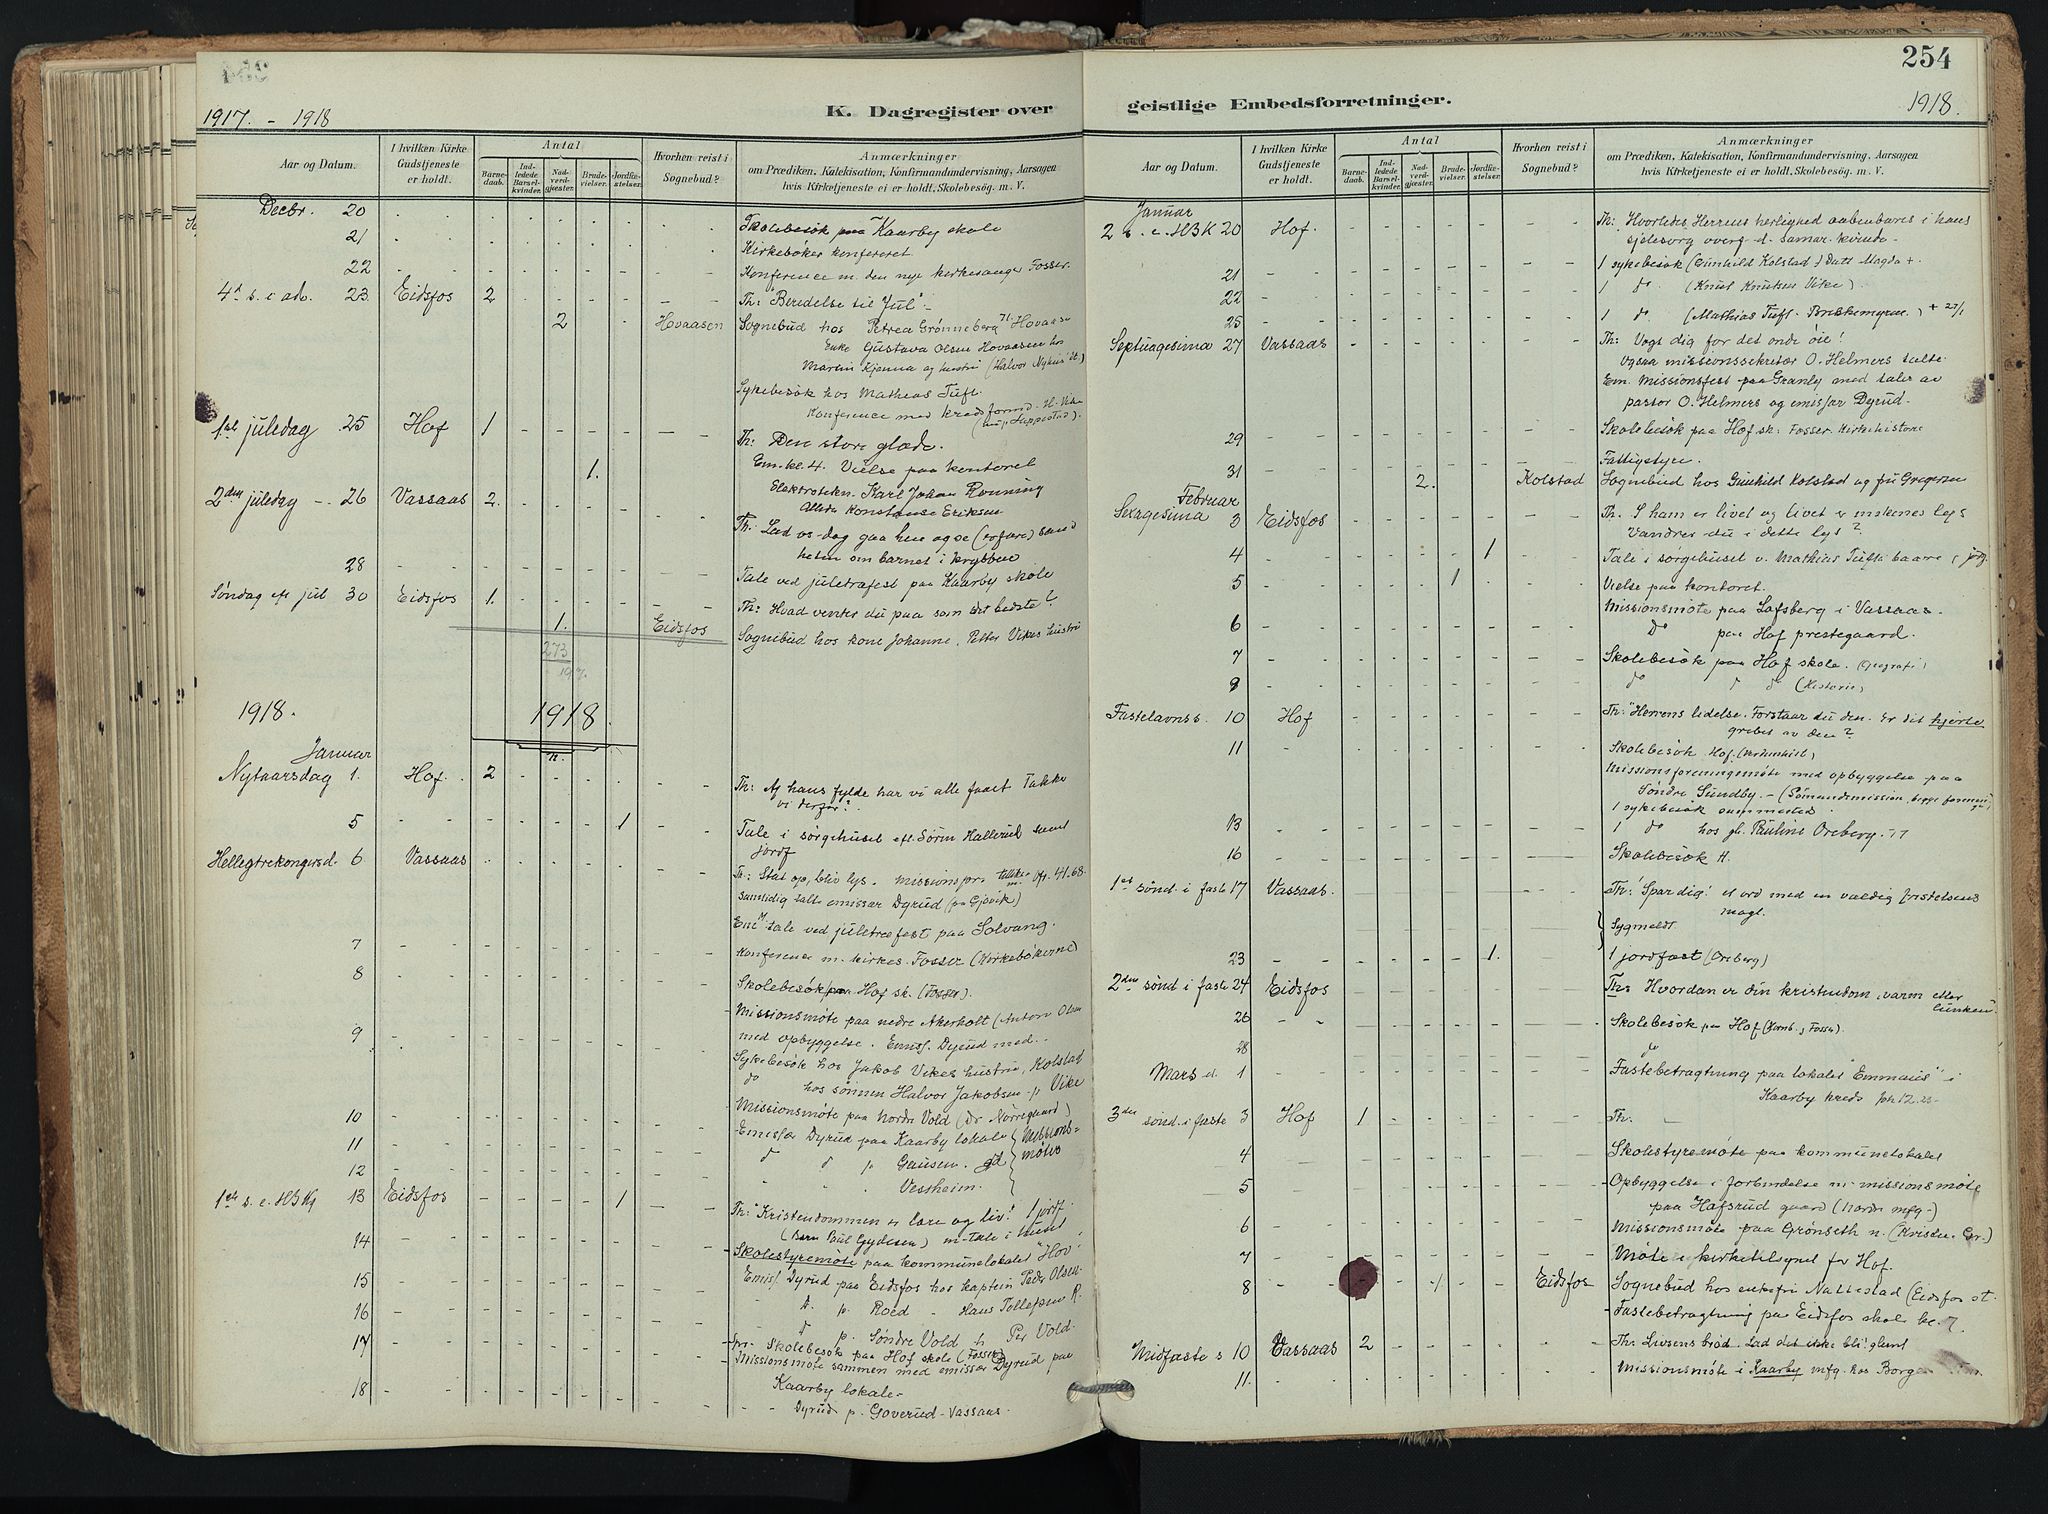 254
1917. - 1918
K. Dagregister over
geistlige Embedsforretninger.
1918.
Aar og Datum.
I hvilken Kirke Gudstjeneste er holdt.
Antal
Barnedaab.
Indledede Barselkvinder.
Nadverdgjæster.
Brudevielser.
Jordfæstelser.
Hvorhen reist i Sognebud?
Anmærkninger
om Prædiken, Katekisation, Konfirmandundervisning, Aarsagen
hvis Kirketjeneste ei er holdt, Skolebesøg. m. V.
Decbr. 20 Skolebesøk paa Kaarby skole
21 Kirkebøker konfereret
22 Konference m. den nye kirkesanger Fosser.
4de s. i adv. 23 Eidsfos 2 Th: "Beredelse til Jul" -
2 Hovaasen Sognebud hos Petrea Grønneberg Hovaasen
Enke Gustava Olsen Hovaasen hos
Martin Kjenna og hustru (Halvor Nyhus
Sykebesøk hos Mathias Tuft.
Konference med kredsformd.
1ste juledag 25 Hof 1 Th: Den store glæde.
1. Em. kl. 4. Vielse paa kontoret
Elektrotekn. Karl Johan Rønning
Konstanse Eriksen
2den juledag - 26 Vassaas 2. Th: Lad os dag gaa hen og se (erfare) sand
heten om barnet i krybben
28 Tale ved juletræfest paa Kaarby skole
Søndag eft jul 30 Eidsfos 1. Th: Hvad venter du paa som det bedste?
1. Eidsfos Sognebud hos kone Johanne, Petter Vikes hustru
273
1917.
1918. 1918.
Januar
Nytaarsdag 1. Hof. 2 Th: Af hans fylde har vi alle faaet Takker
vi derfor?
5 1 Tale i sørgehuset eft. Sørm Hallerud samt
jordf
Helligtrekongersd. 6 Vassaas Th: Staa op, bliv lys. Missionspr. 41.68.
samtidig talte emissær Dyrud (pr Gjøvik)
Em tale ved juletræfest paa Solvang.
7 Konference m. kirkes. Fosser (Kirkebøkerne)
8 Skolebesøk paa Hof sk. (Fosser).
Missionsmøte paa nedre Akerholt (Anton Olsen
9 med opbyggelse. Emiss. Dyrud med.
Sykebesøk hos Jakob Vikes hustru, Kolstad
do hos sønnen Halvor Jakobsen p Vike
10 Missionsmøte paa Nordre Vold (do Nørregaard)
11 Emissær Dyrud paa Kaarby lokale Missions-
12 Gausen. møter
Vestheim.
1ste s. e. H3K 13 Eidsfos 1 Th: "Kristendommen er lære og liv! 1 jordf.
14 (Barn Paul Gydesen) m. tale i huset
Skolestyremøte paa kommunelokalet "Hov".
15 Emiss. Dyrud paa Eidsfos hos kaptein Peder Olsen
16 p. Roed - Hans Tollefsen R.
17 p. Søndre Vold h Per Vold.
Skolebesøk paa Hof skole (Fosser)
Missionsmøte sammen med emissær Dyrud paa
18 Kaarby lokale -
Dyrud p. Goverud - Vassaas.
Aar og Datum.
I hvilken Kirke Gudstjeneste er holdt.
Antal
Barnedaab.
Indledede Barselkvinder.
Nadverdgjæster.
Brudevielser.
Jordfæstelser.
Hvorhen reist i Sognebud?
Anmærkninger
om Prædiken, Katekisation, Konfirmandundervisning, Aarsagen
hvis Kirketjeneste ei er holdt, Skolebesøg. m. V.
Januar
2 s. e. H3K 20 Hof. Th: Hvorledes Herrens herlighed aabenbares i hans
sjelesorg overf. d. samar. kvinde -
21 1 sykebesøk (Gunhild Kolstad) Datt Magda +.
22 1 do (Knut Knutsen Vike)
25 1 do (Mathias Tuft. ) + 27/1
Septuagesima 27 Vassaas Th: Vogt dig for det onde øie!
Ogsaa missionssekretær O. Helmers talte
Em. missionsfest paa Granly med taler av
pastor O. Helmers og emissær Dyrud.
29 Skolebesøk paa Hof sk. Fosser. Kirkehistorie
Fattigstyre.
31 2. Kolstad Sognebud hos Gunhild Kolstad og fru Gregersen
Februar
Sexagesima 3 Eidsfos Th. I ham er livet og livet er mskenes lys
Vandrer du i dette lys?
4 1 Tale i sørgehuset v. Mathias Tufts baare, jordf
5 1 Vielse paa kontoret.
Missionsmøte paa Lofsberg i Vassaas.
6 do paa Hof prestegaard.
7 Skolebesøk paa Hof skole. (Geografi)
9 do (Historie)
Fastelavns s. 10 Hof Th: "Herrens lidelse. Forstaar du den. Er dit hjerte
grebet av den?
11 Skolebesøk Hof.
Missionsforeningsmøte med opbyggelse paa
Søndre Sundby. - (Sømandsmission,
1 sykebesøk sammested
13 1 do hos gl. Pauline Oreberg. 77
16 Skolebesøk H.
1ste sønd. i faste 17 Vassaas. Th: Spar dig! et ord med en vældig fristelsens
magt.
Sygmeldt
23 1. 1 jordfæst (Oreberg)
2den sønd i faste 24 Eidsfos Th: Hvordan er din kristendom, varm eller
lunken?
26 Skolebesøk paa Hof (Komb. Fosser).
28 do
Mars d. 1 Fastebetragtning paa lokalet "Emmaus" i
Kaarby kreds
3die sønd. i faste 3 Hof 1 Th.
4 Skolestyremøte paa kommunelokalet
5 Opbyggelse i forbindelse m. missionsmøte
paa Hafsrud gaard (Nordre mfg.)
6 Missionsmøte paa Grønseth n. (Gr.)
7 Møte i kirketilsynet for Hof.
8 1 Eidsfos Sognebud hos enkefru Nattestad (Eidsfos st.
Fastebetragtning pa Eidsfos skole kl. 7.
Midfaste s 10 Vassaas 2 Th: Livsens brød. Lad det ikke bli glemt
11. Missionsmøte i Kaarby mfg. hos Borgen